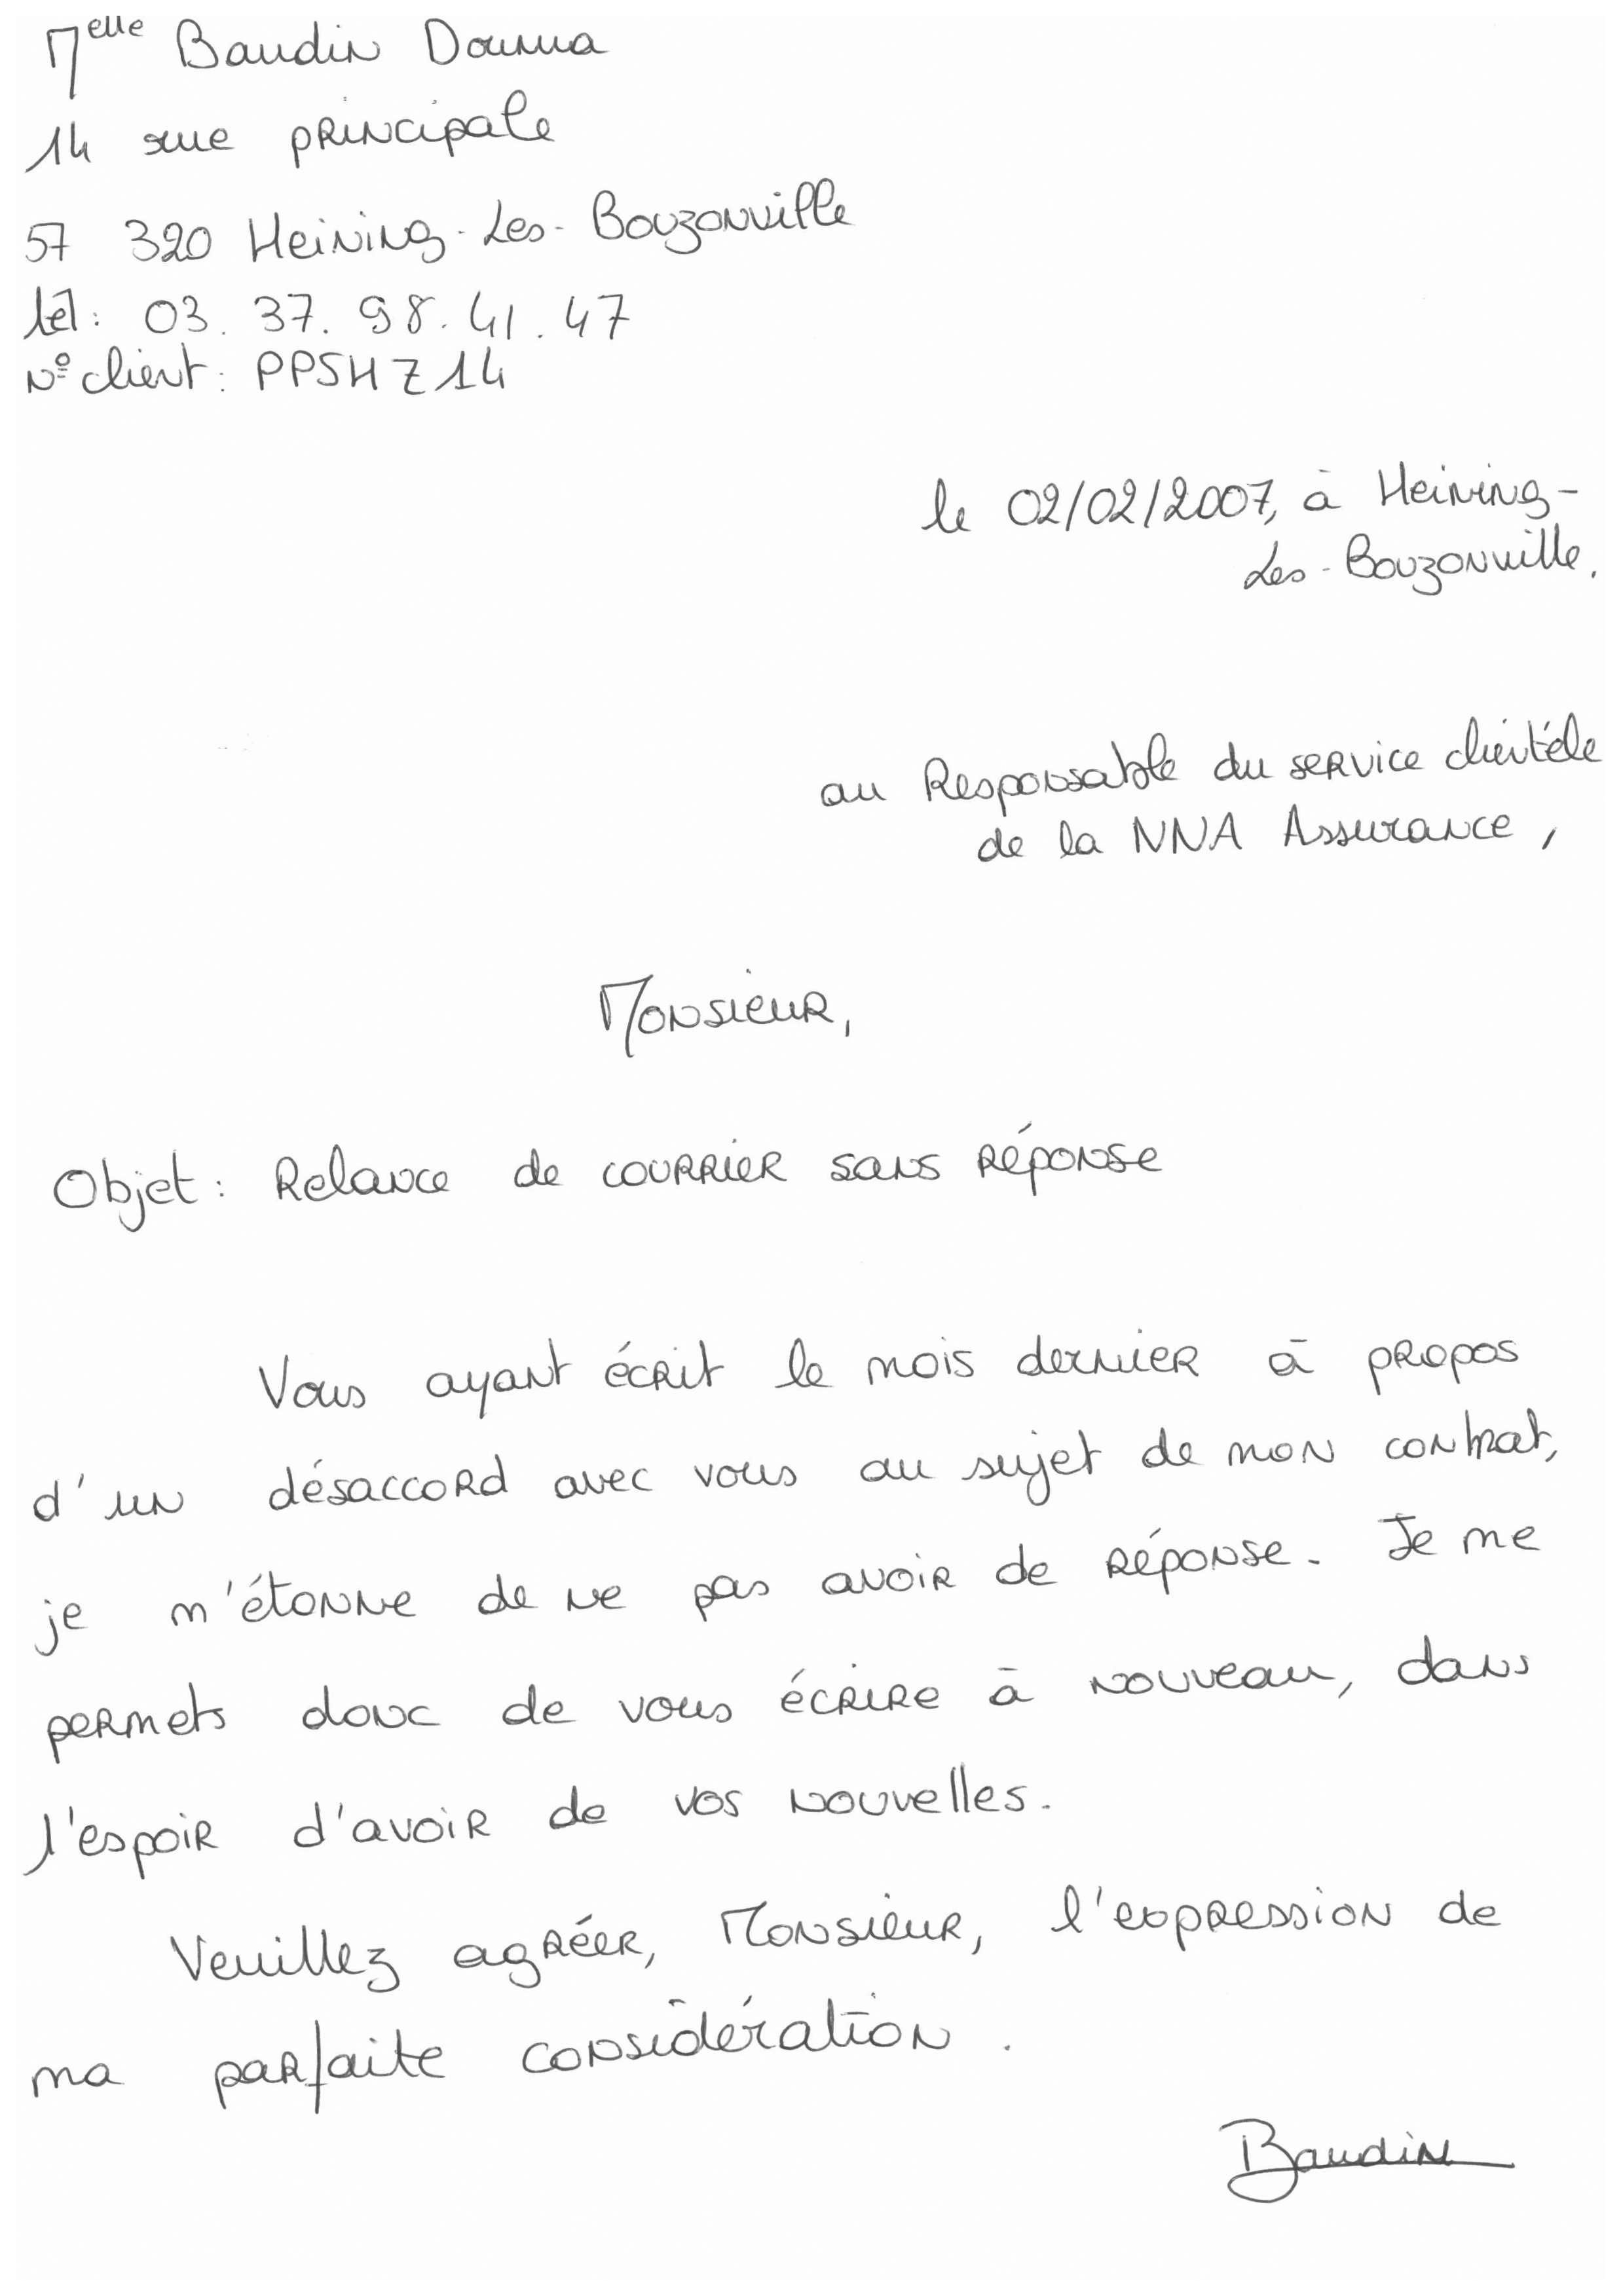 Melle Baudin Donna
14 rue principale
57 320 Heining-Les-Bouzonville
tél: 03. 37. 98. 41. 47
N° client: PPSHZ14
le 02/02/2007, à Heining-
Les-Bouzonville.
au Responsable du service clientèle
de la NNA Assurance,
Monsieur,
Objet: Relance de courrier sans réponse
Vous ayant écrit le mois dernier à propos
d'un désaccord avec vous au sujet de mon contrat,
je m'étonne de ne pas avoir de réponse. Je me
permets donc de vous écrire à nouveau, dans
l'espoir d'avoir de vos nouvelles.
Veuillez agréer, Monsieur, l'expression de
ma parfaite considération.
Baudin